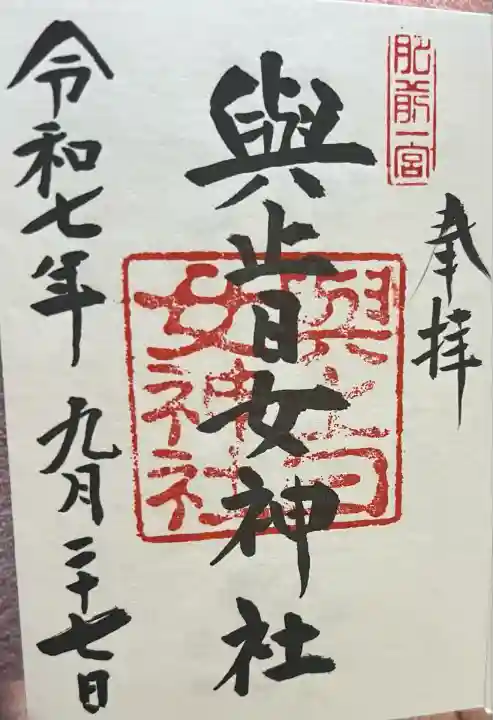 肥前一宮
奉拝
與止日女神社
與止日
女神社
令和七年九月二十七日